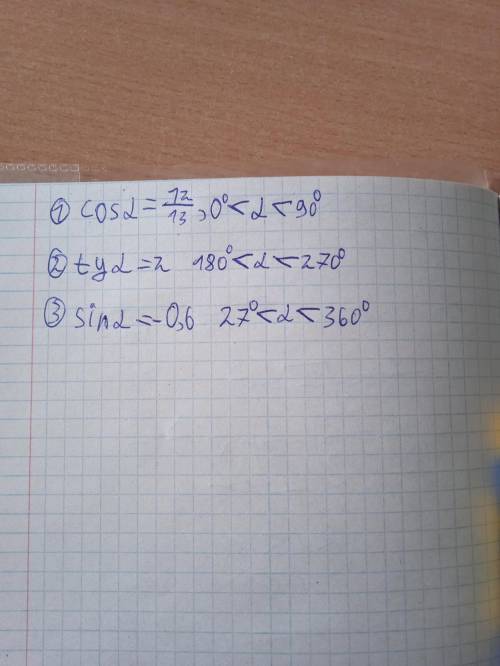 ① cosα = 12/13, 0° < α < 90°
② tgα = 2 180° < α < 270°
③ sinα = -0,6 27° < α < 360°